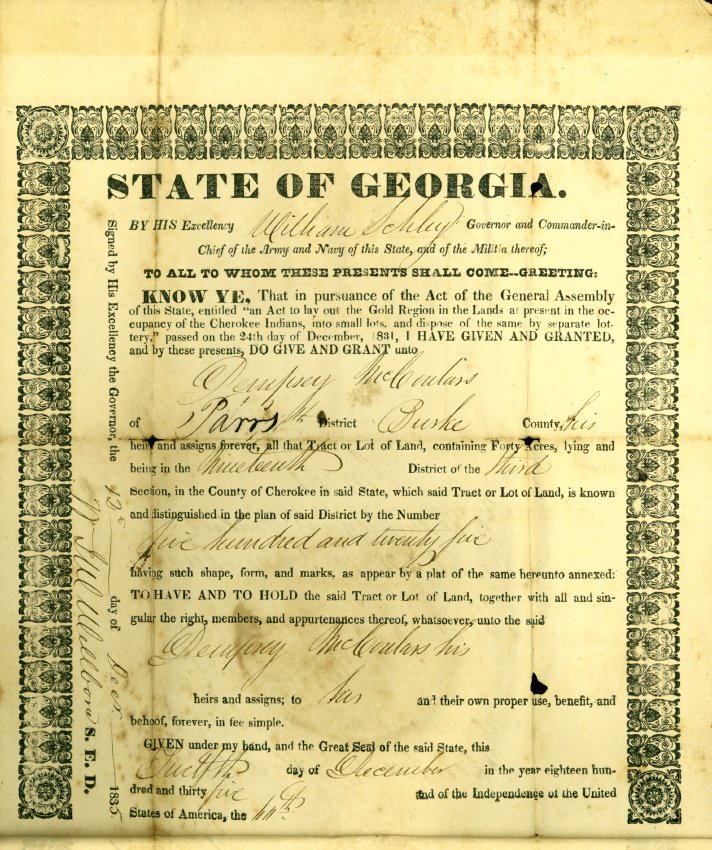 STATE OF GEORGIA.
BY HIS Excellency William Schley Governor and Commander-in-
Chief of the Army and Navy of this State, and of the Militia thereof;
TO ALL TO WHOM THESE PRESENTS SHALL COME--GREETING:
KNOW YE, That in pursuance of the Act of the General Assembly
of this State, entitled "an Act to lay out the Gold Region in the Lands at present in the oc-
cupancy of the Cherokee Indians, into small lots, and dispose of the same by separate lot-
tery," passed on the 24th day of December, 1831, I HAVE GIVEN AND GRANTED,
and by these presents, DO GIVE AND GRANT unto
Dempsey McCoulars
of Parris District Burke County, his
heirs and assigns forever, all that Tract or Lot of Land, containing Forty Acres, lying and
being in the nineteenth District of the third
Section, in the County of Cherokee in said State, which said Tract or Lot of Land, is known
and distinguished in the plan of said District by the Number
five hundred and twenty five
having such shape, form, and marks, as appear by a plat of the same hereunto annexed:
TO HAVE AND TO HOLD the said Tract or Lot of Land, together with all and sin-
gular the right, members, and appurtenances thereof, whatsoever, unto the said
Dempsey McCoulars his
heirs and assigns; to his and their own proper use, benefit, and
behoof, forever, in fee simple.
GIVEN under my hand, and the Great Seal of the said State, this
Twelfth day of December in the year eighteen hun-
dred and thirty five and of the Independence of the United
States of America, the 60th.
Signed by His Excellency the Governor, the 12th day of Decr 1835
S. E. D.